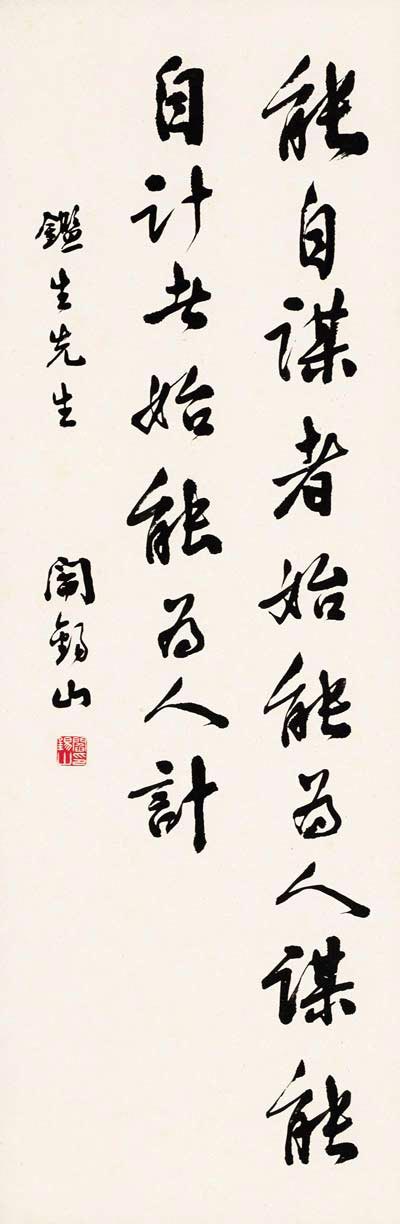 能自謀者始能為人謀能
自計者始能為人計
鑑生先生
閻錫山
閻錫山印